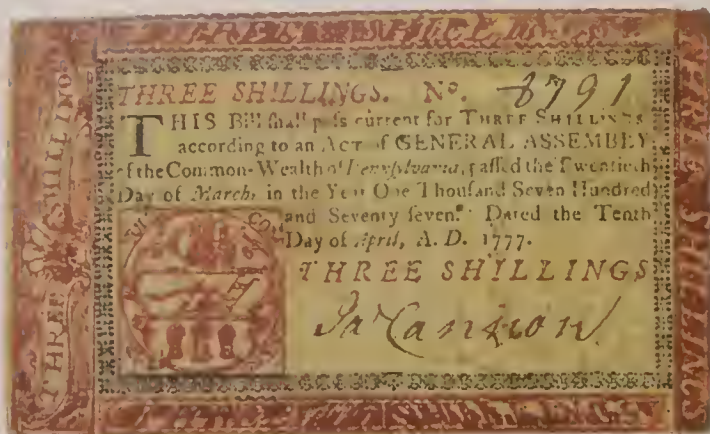 THREE SHILLINGS. No. 8791
THIS Bill ſhall paſs current for THREE SHILLINGS
according to an ACT of GENERAL ASSEMBLY
of the Common-Wealth of Pennſylvania, paſſed the Twentieth
Day of March, in the Year One Thouſand Seven Hundred
and Seventy ſeven. Dated the Tenth
Day of April, A. D. 1777.
THREE SHILLINGS
Ja. Cannon
THREE SHILLINGS
THREE SHILLINGS